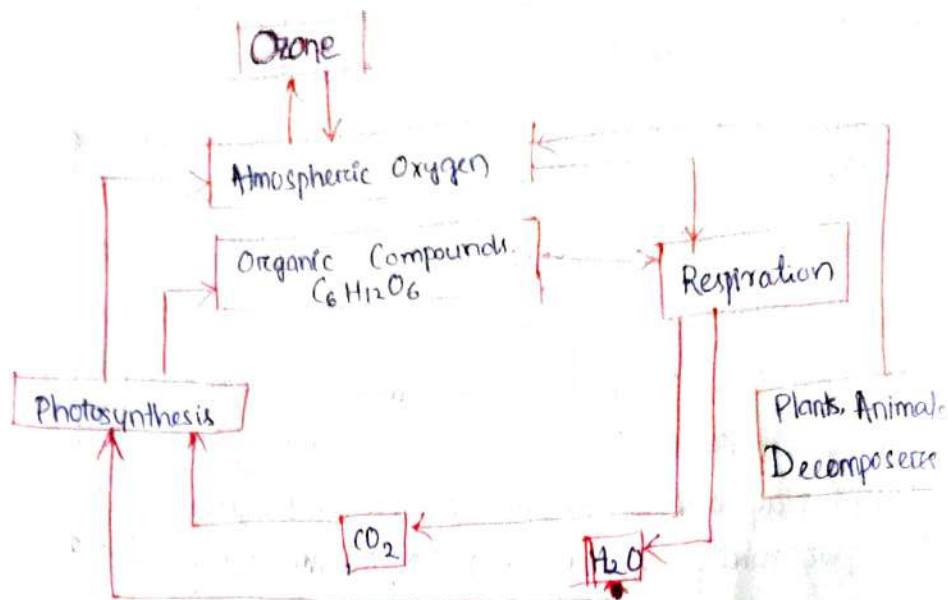 Ozone
Atmospheric Oxygen
Organic Compounds.
C6H12O6
Respiration
Photosynthesis
Plants, Animals
Decomposers
CO2
H2O